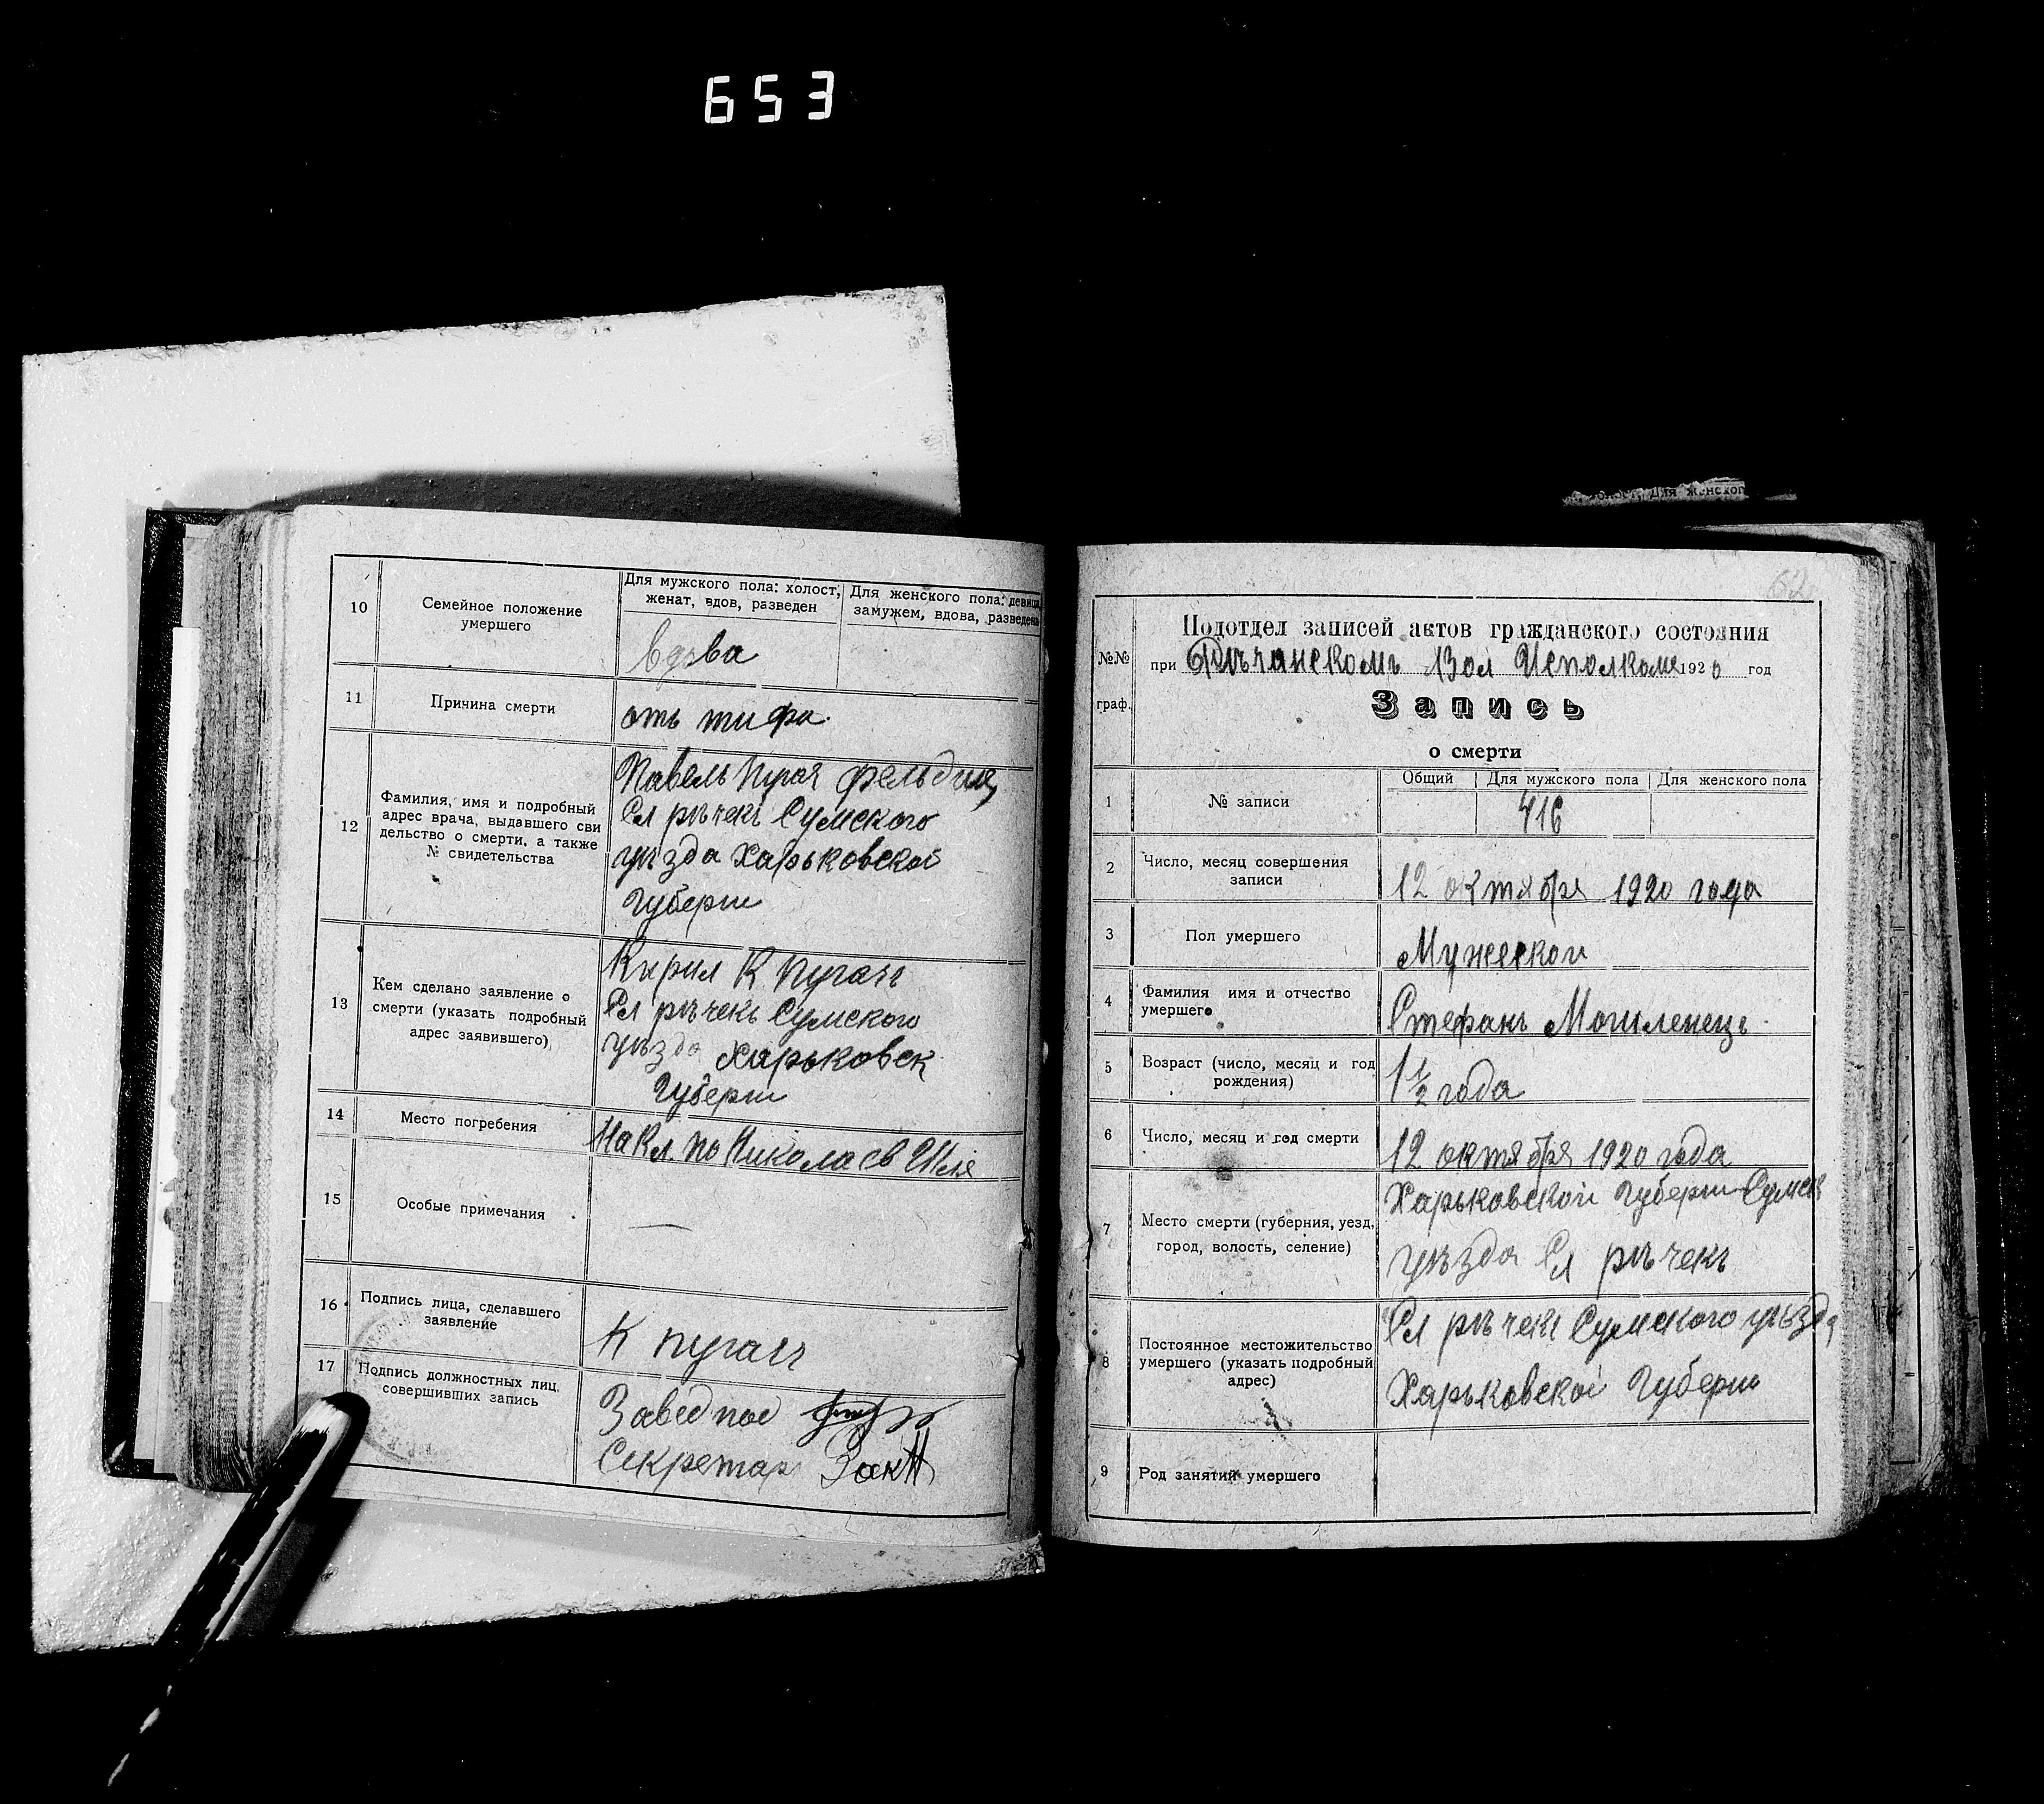 653
10
Семейное положение
умершего
Для мужского пола: холост,
женат, вдов, разведен
Для женского пола: девица,
замужем, вдова, разведена
вдова
11
Причина смерти
отъ тифа.
12
Фамилия, имя и подробный
адрес врача, выдавшего сви
дельство о смерти, а также
№ свидетельства
Павелъ Пугач фельдше,
Сл ръчекъ Сумского
уъзда Харьковской
Губерти
13
Кем сделано заявление о
смерти (указать подробный
адрес заявившего)
Кирил К Пугачъ
Сл ръчекъ Сумского
уъзда Харьковск
Губерни
14
Место погребения
На Кл. по Николаев
15
Особые примечания
—
16
Подпись лица, сделавшего
заявление
К пугачъ
17
Подпись должностных лиц,
совершивших запись
Завед пос
Секретар
62
№№
граф.
Подотдел записей актов гражданского состояния
при Ръчанскомъ Вол Исполкоме 1920 год
Запись
о смерти
1
№ записи
Общий
Для мужского пола
Для женского пола
416
2
Число, месяц совершения
записи
12 октября 1920 года
3
Пол умершего
Мужескои
4
Фамилия имя и отчество
умершего
Стефанъ Могиленецъ
5
Возраст (число, месяц и год
рождения)
1 1/2 года
6
Число, месяц и год смерти
12 октября 1920 года
7
Место смерти (губерния, уезд,
город, волость, селение)
Харьковской Губерни Сумск
уъзда Сл ръчекъ
8
Постоянное местожительство
умершего (указать подробный
адрес)
Сл ръчекъ Сумского уъзда
Харьковской Губерни
9
Род занятий умершего
Для женског